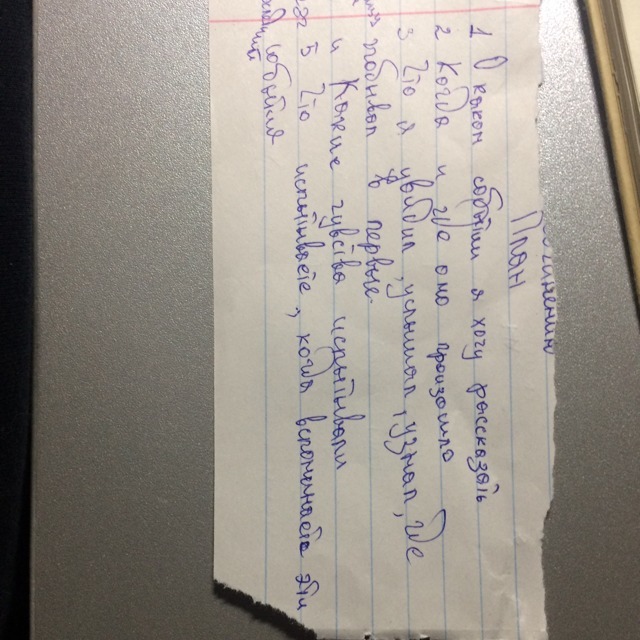 План
1 О каком событии я хочу рассказать
2 Когда и где оно произошло
3 Что я увидил, услышал, узнал, где
побывал в первые.
и Какие чувства испытывали
5 Что испытываете, когда вспоминаете эти
события